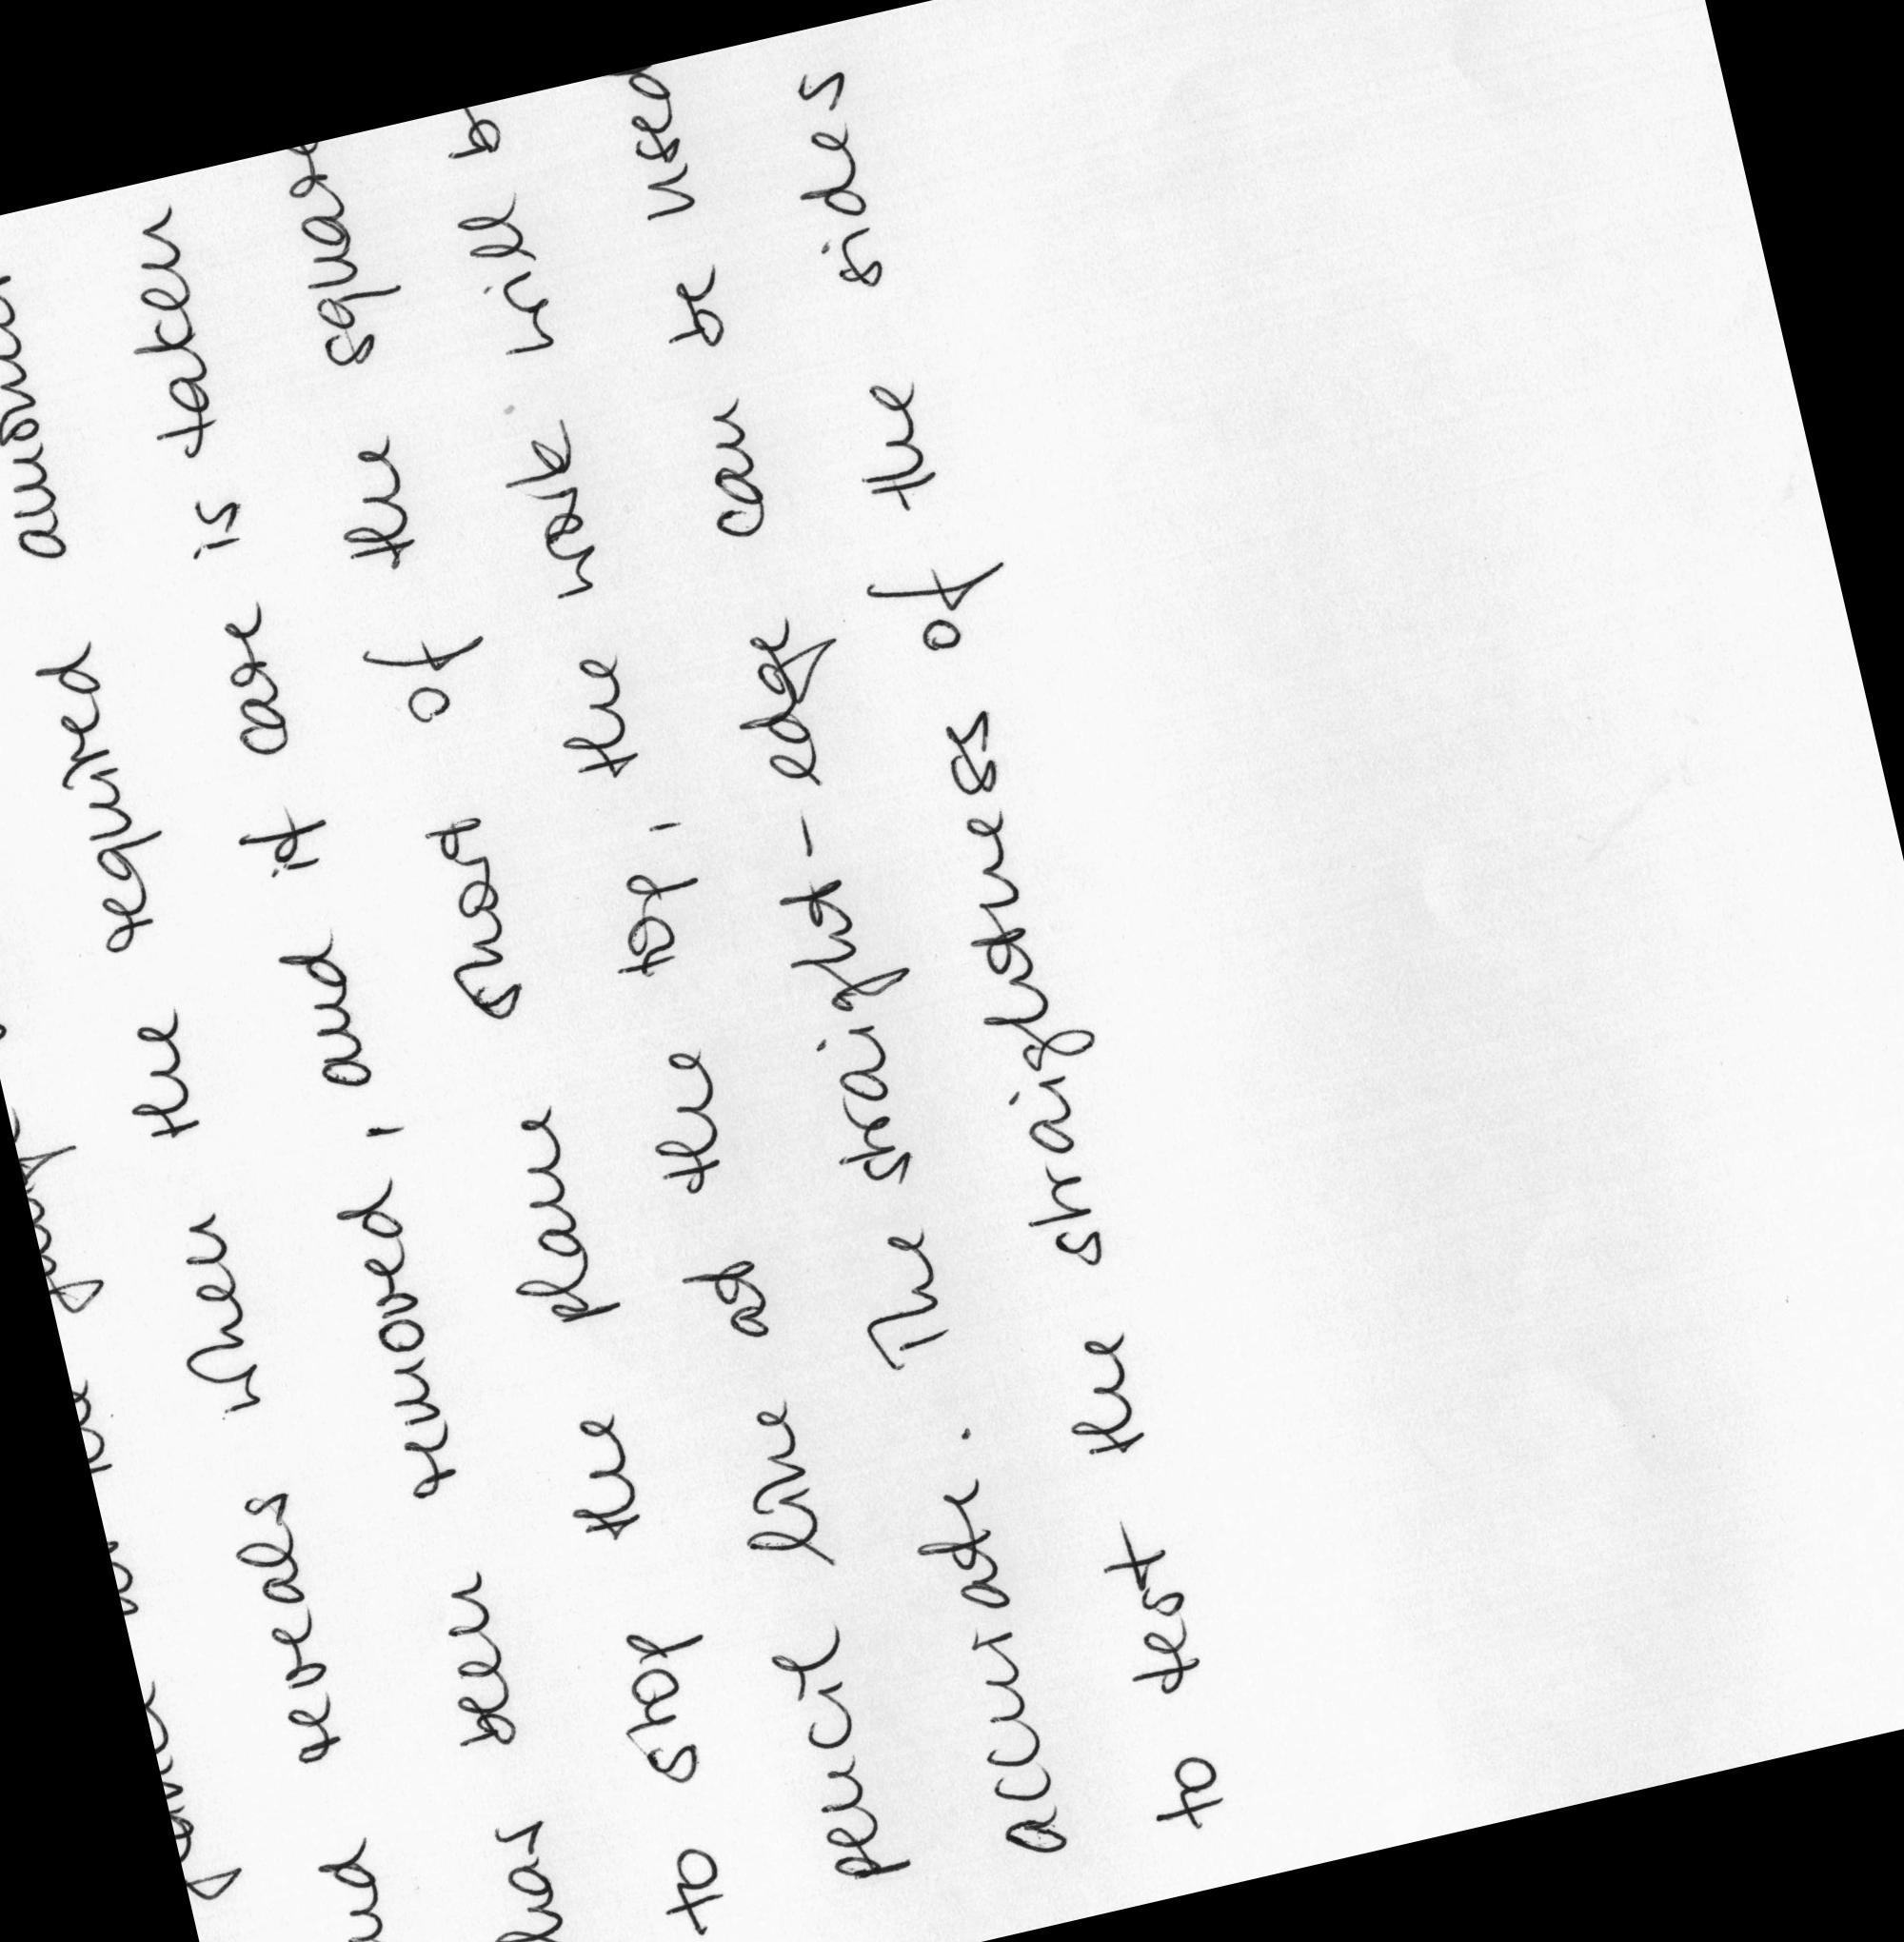 reveals when the required amount
has been removed, and if care is taken
to stop the plane short of the square
pencil line at the top, the work will
accurate. The straight-edge can be used
to test the straightness of the sides